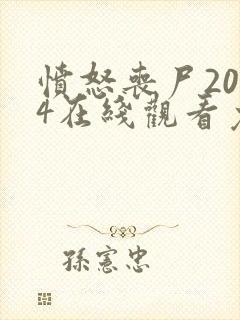 憤怒喪尸20
4在綫觀看
孫憲忠